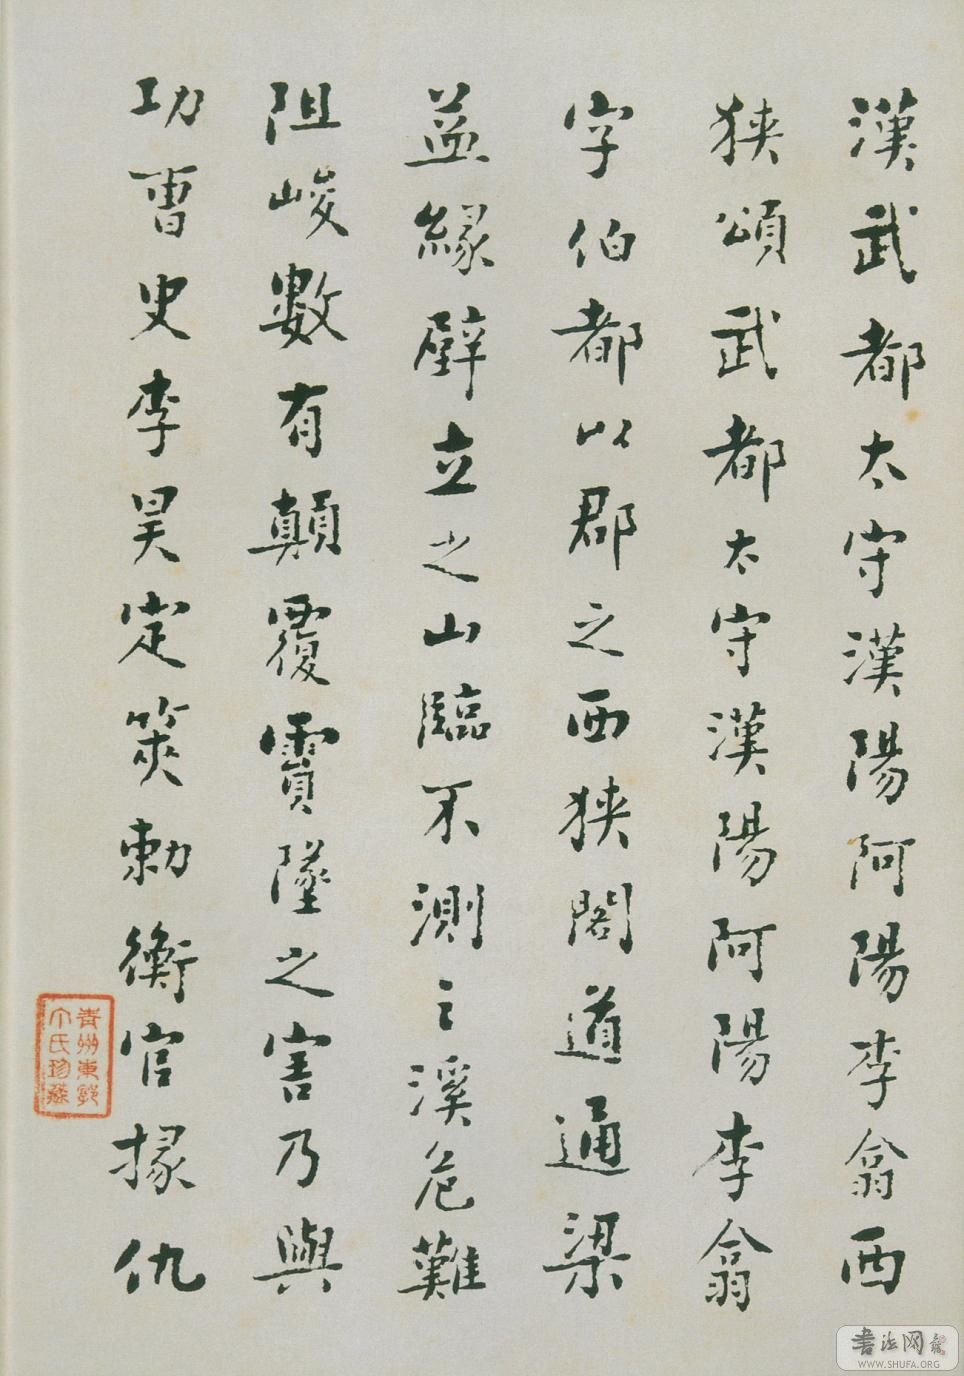 漢武都太守漢陽阿陽李翕西
狹頌武都太守漢陽阿陽李翕
字伯都以郡之西狹閣道通梁
益緣壁立之山臨不測之溪危難
阻峻數有顛覆霣墜之害乃與
功曹史李昊定筴勑衡官掾仇
青州東郭
氏珍藏
書法网
WWW.SHUFA.ORG